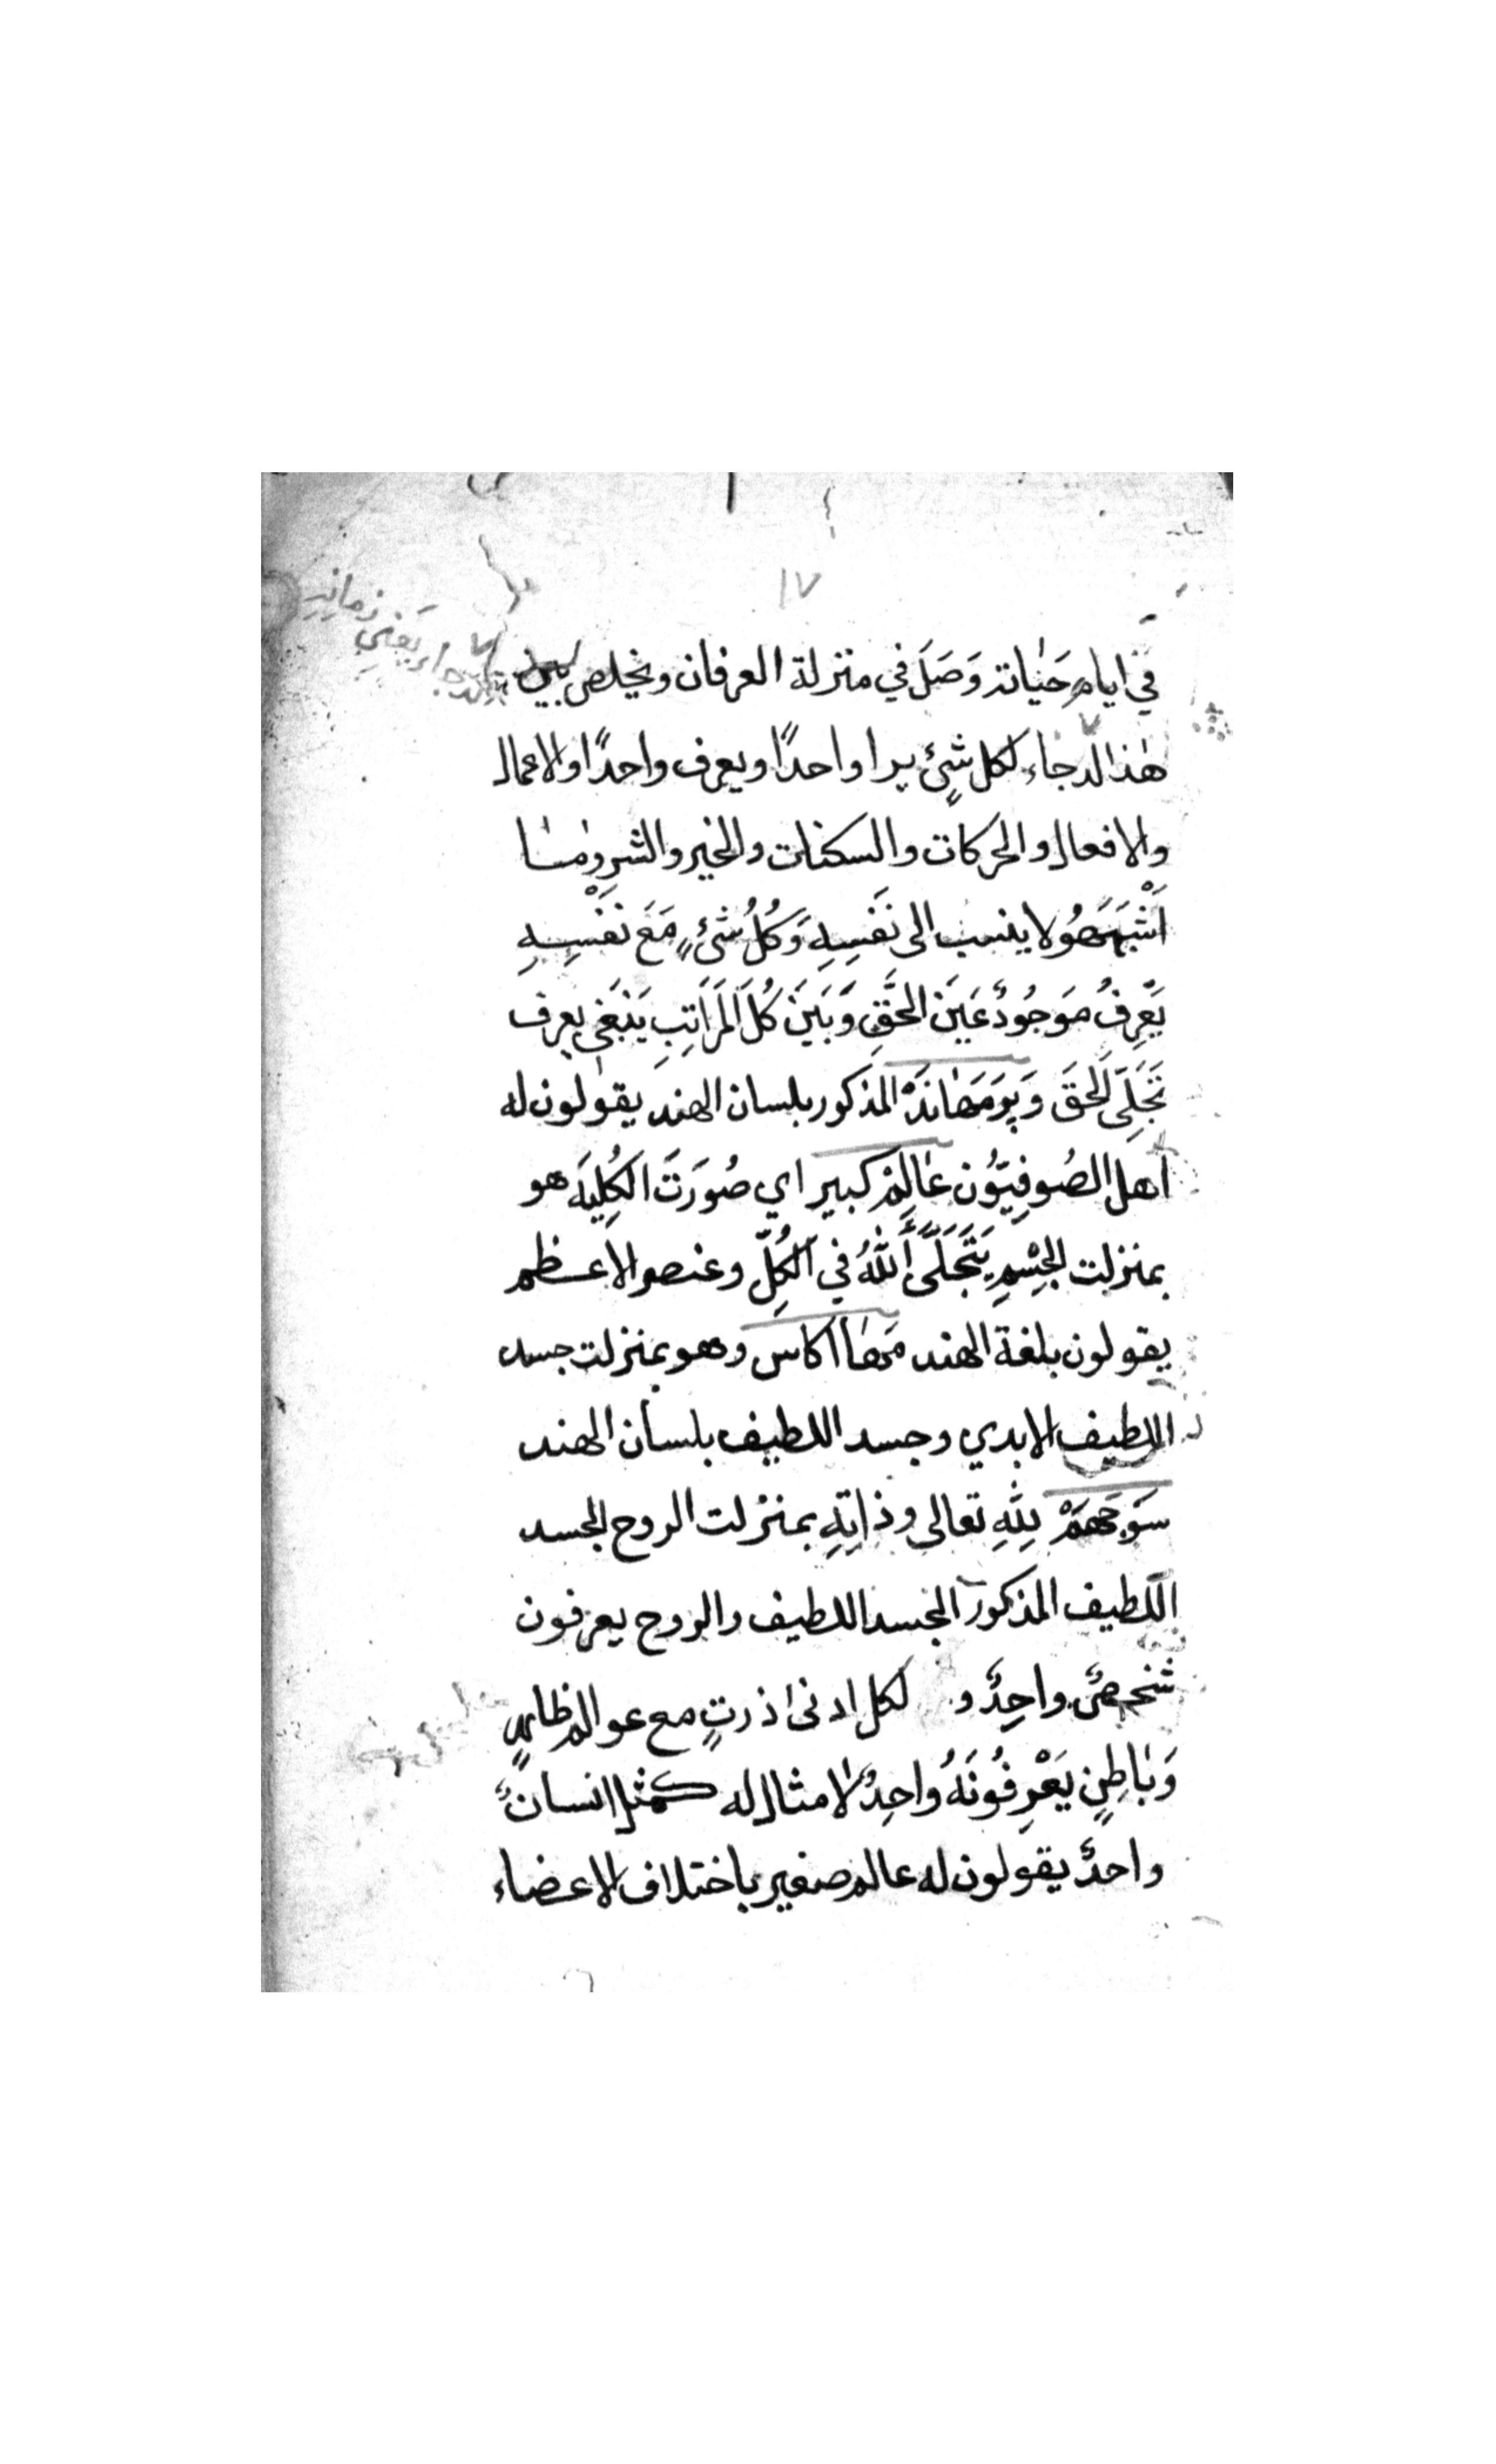 ١٧
في ايام حَيٰاته وَصَلَ في منزلة العرفان ويخلص
هٰذا الدجاء لكل شئٍ يرا واحدًا ويعرف واحدًا والاعمال
والافعال والحركات والسكنات والخير والشر ومٰا
اَشْبَهَهُو لا ينسب الى نَفسِهِ وَكُلُ شئٍ مَعَ نَفْسِهِ
يَعْرِفُ مَوجُودٌ عَينَ الحَقِّ وَبَينَ كُلَ المَرَاتِبِ يَنبَغى يعرف
تَجَلِّى الحقَ وَبِرَمَهَانَدْ المذكور بلسان الهند يقولون له
اهل الصُوفِيّوُن عٰالِمْ كبير اي صُورَتَ الكُلِيَه هو
بمنزلت الجِسْمِ يَتَجَلَّى اَللهُ في اَلكُلِّ وعنصر الاعظم
يقولون بلغة الهند مَهٰا اكاس وهو بمنزلت جسد
اللطيف الابدي وجسد اللطيف بلسان الهند
سَوجَهَمْ لِلّٰهِ تعالى وذاتِهِ بمنزلت الروح الجسد
اللطيف المذكور الجسد اللطيف والروح يعرفون
شخصٌ واحِدٌ و لكل ادنىٰ ذرتٍ مع عوالم ظاهرٍ
وَبٰاطِنٍ يَعْرِفُونَهُ واحِدٌ لا مثال له كمثل انسانٌ
واحدٌ يقولون له عالم صغير باختلاف الاعضاء